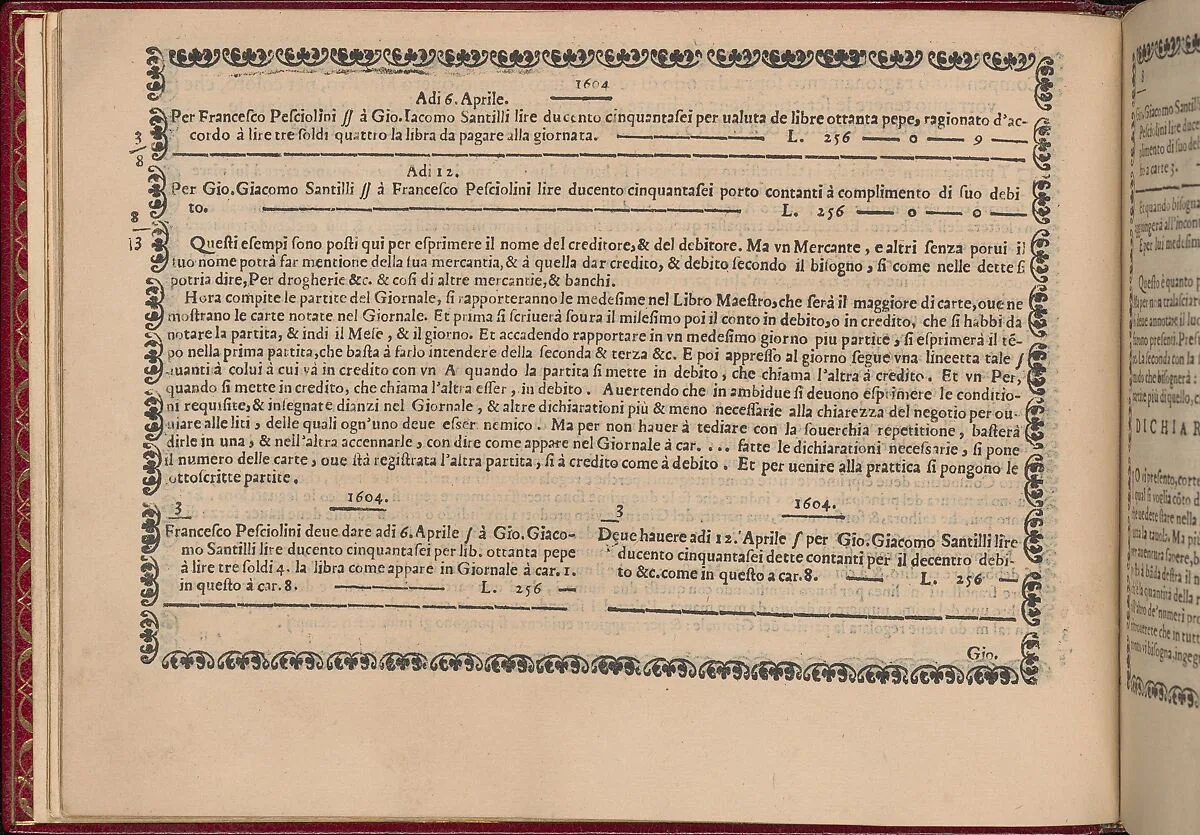 1604
Adi 6. Aprile.
Per Francesco Pesciolini ſſ à Gio. Iacomo Santilli lire ducento cinquantasei per ualuta de libre ottanta pepe, ragionato d'ac-
3/8
cordo à lire tre soldi quattro la libra da pagare alla giornata. L. 256 — 0 — 9 —
Adi 12.
Per Gio. Giacomo Santilli ſſ à Francesco Pesciolini lire ducento cinquantasei porto contanti à complimento di suo debi
8/13
to. L. 256 — 0 — 0 —
Questi esempi sono posti qui per esprimere il nome del creditore, & del debitore. Ma vn Mercante, e altri senza porui il
suo nome potrà far mentione della sua mercantia, & à quella dar credito, & debito secondo il bisogno, si come nelle dette si
potria dire, Per drogherie &c. & cosi di altre mercantie, & banchi.
Hora compite le partite del Giornale, si rapporteranno le medesime nel Libro Maestro, che serà il maggiore di carte, oue ne
mostrano le carte notate nel Giornale. Et prima si scriuerà soura il milesimo poi il conto in debito, o in credito, che si habbi da
notare la partita, & indi il Mese, & il giorno. Et accadendo rapportare in vn medesimo giorno piu partite, si esprimerà il tẽ-
po nella prima partita, che basta à farlo intendere della seconda & terza &c. E poi appresso al giorno segue vna lineetta tale ſ
auanti à colui à cui và in credito con vn A quando la partita si mette in debito, che chiama l'altra à credito. Et vn Per,
quando si mette in credito, che chiama l'altra esser, in debito. Auertendo che in ambidue si deuono esprimere le conditio-
ni requisite, & insegnate dianzi nel Giornale, & altre dichiarationi più & meno necessarie alla chiarezza del negotio per ou-
uiare alle liti, delle quali ogn'uno deue esser nemico. Ma per non hauer à tediare con la souerchia repetitione, basterà
dirle in una, & nell'altra accennarle, con dire come appare nel Giornale à car. . . . fatte le dichiarationi necessarie, si pone
il numero delle carte, oue stà registrata l'altra partita, si à credito come à debito. Et per uenire alla prattica si pongono le
ottoscritte partite.
3 1604.
Francesco Pesciolini deue dare adi 6. Aprile ſ à Gio. Giaco-
mo Santilli lire ducento cinquantasei per lib. ottanta pepe
à lire tre soldi 4. la libra come appare in Giornale à car. 1.
in questo à car. 8. L. 256 —
3 1604.
Deue hauere adi 12. Aprile ſ per Gio. Giacomo Santilli lire
ducento cinquantasei dette contanti per il decentro debi-
to &c. come in questo à car. 8. L. 256 —
Gio.
8
Gio. Giacomo Santilli
Pesciolini lire duce
plimento di suo de
to à carte 3.
Et quando bisogna
giungerà all'incon
E per lui medesim
Questo è quanto p
DICHIAR